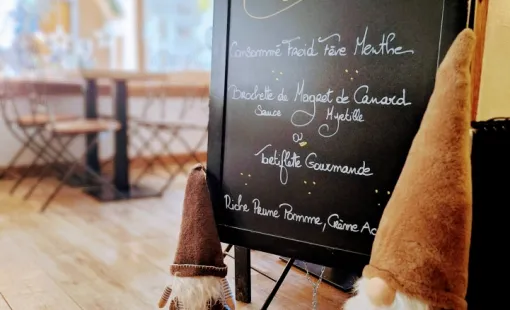 Consommé Froid Fève Menthe
Brochette de Magret de Canard
Sauce Myrtille
ou
Tartiflette Gourmande
Pomme, Crème